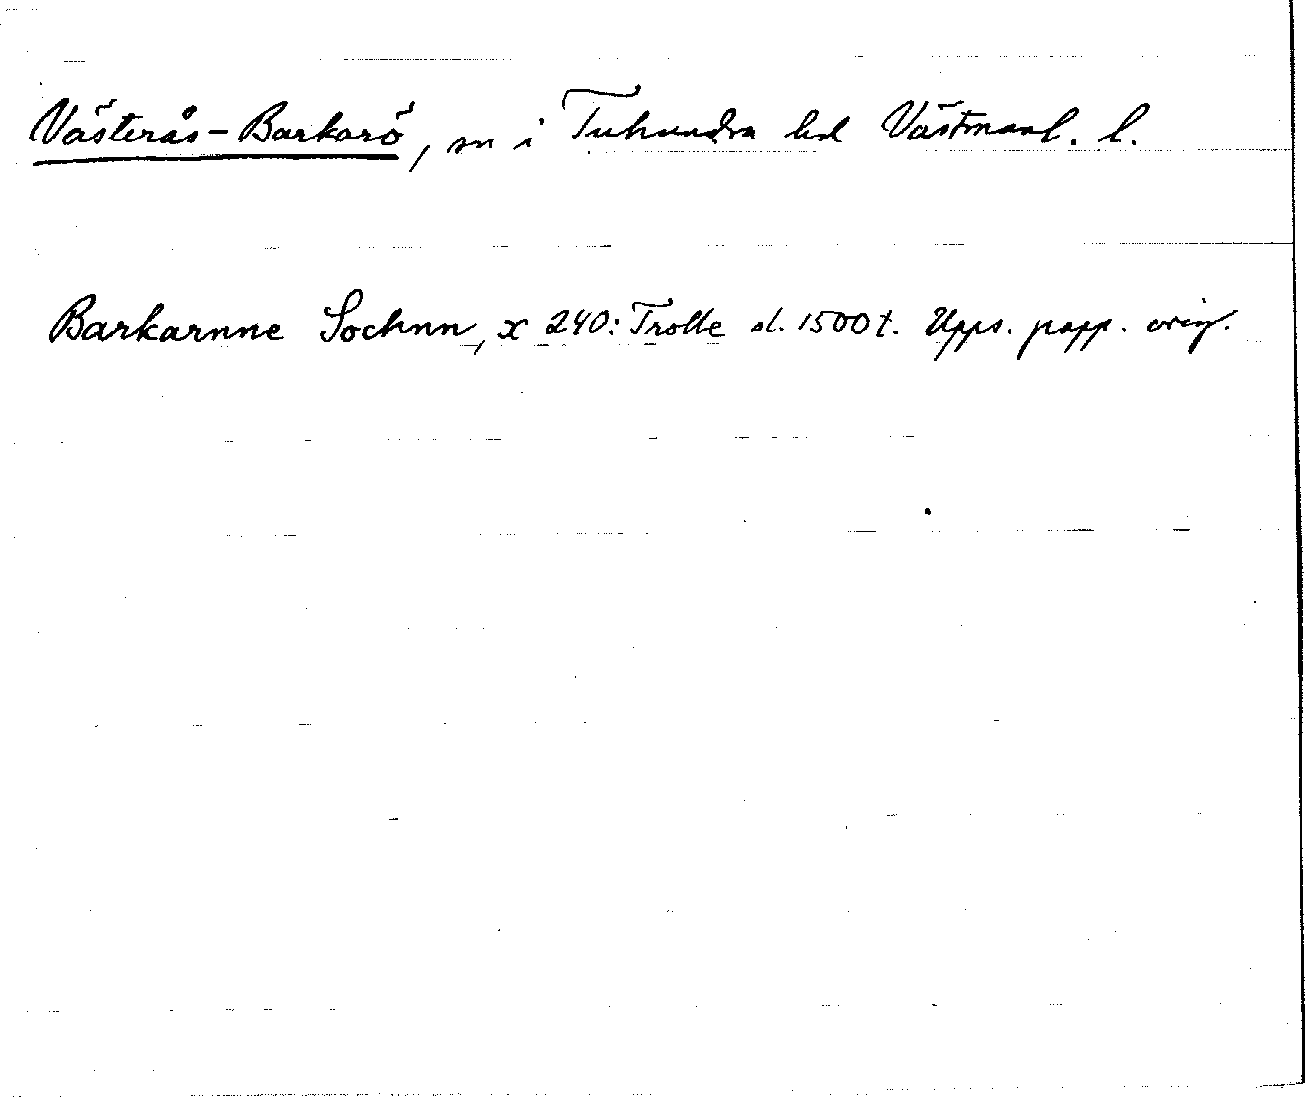 Västerås-Barkarö, sn i Tuhundra hd Västmanl. l.
Barkarnne Sochnn, x 240: Trolle sl. 1500 t. Upps. papp. orig.